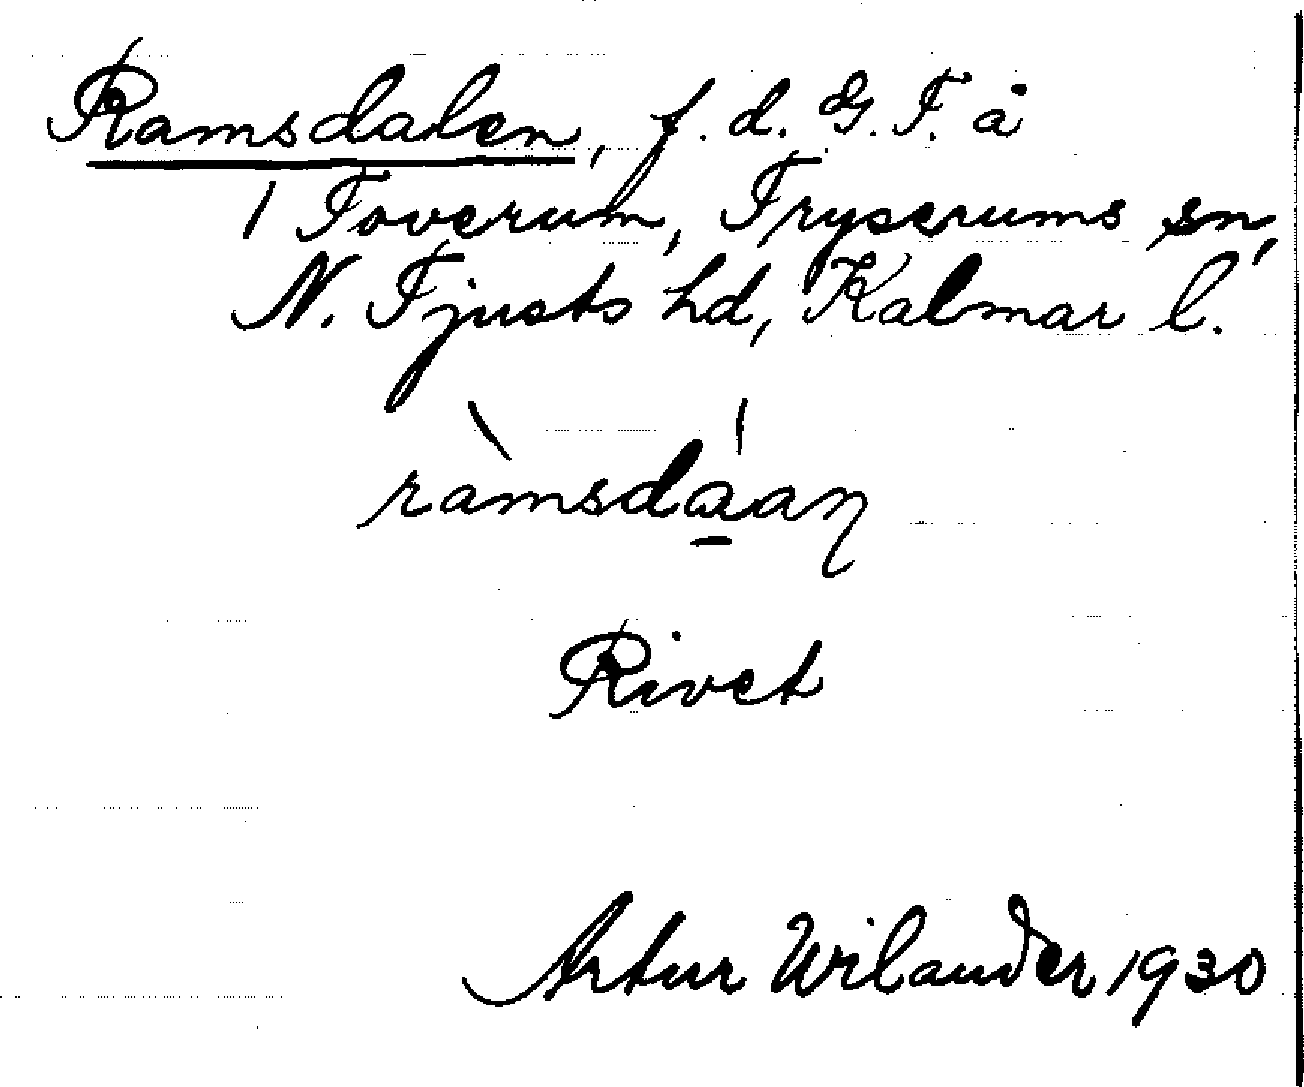 Ramsdalen, f. d. G. T. å
1 Toverum, Tryserums sn,
N. Tjusts hd, Kalmar l.
ràmsdáan
Rivet
Artur Wilander 1930